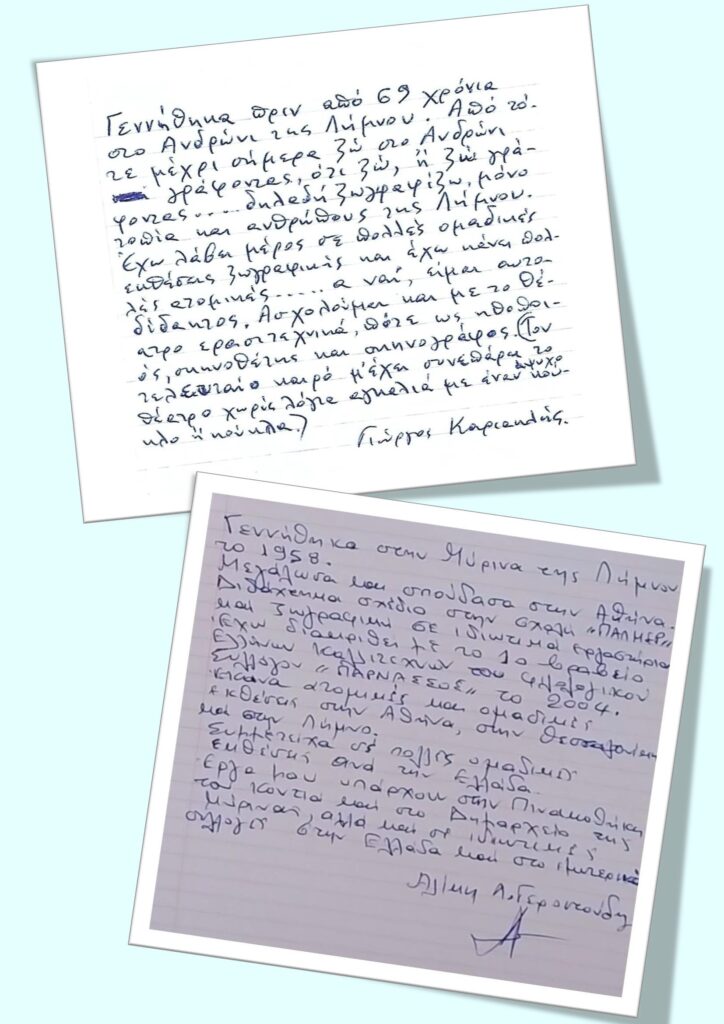 Γεννήθηκα πριν από 69 χρόνια
στο Ανδρώνι της Λήμνου. Από τό-
τε μέχρι σήμερα ζώ στο Ανδρώνι
γράφοντας, ότι ζώ, ή ζώ γρά-
φοντας.... δηλαδή ζωγραφίζω, μόνο
τοπία και ανθρώπους της Λήμνου.
Έχω λάβει μέρος σε πολλές ομαδικές
εκθέσεις ζωγραφικής και έχω κάνει πολ-
λές ατομικές..... α ναί, είμαι αυτο-
δίδακτος. Ασχολούμαι και με το θέ-
ατρο ερασιτεχνικά, πότε ως ηθοποι-
ός, σκηνοθέτης και σκηνογράφος. (Τον
τελευταίο καιρό μ' έχει συνεπάρει το
θέατρο χωρίς λόγια αγκαλιά με έναν άψυχο κού-
κλο ή κούκλα.)
Γιώργος
Γεννήθηκα στην Μύρινα της Λήμνου
το 1958.
Μεγάλωσα και σπούδασα στην Αθήνα.
Διδάχτηκα σχέδιο στην σχολή "ΠΑΛΜΕΡ"
και ζωγραφική σε ιδιωτικά εργαστήρια
Έχω διακριθεί με το 1ο βραβείο
Ελλήνων Καλλιτεχνών του φιλολογικού
Συλλόγου "ΠΑΡΝΑΣΣΟΣ" το 2004.
Έκανα ατομικές και ομαδικές
εκθέσεις στην Αθήνα, στην Θεσσαλονίκη
και στην Λήμνο.
Συμμετείχα σε πολλές ομαδικές
εκθέσεις ανά την Ελλάδα.
Έργα μου υπάρχουν στην Πινακοθήκη
του Κοντιά και στο Δημαρχείο της
Μύρινας, αλλά και σε ιδιωτικές
συλλογές στην Ελλάδα και στο εξωτερικό
Αλίκη Α. Γεροντούδη